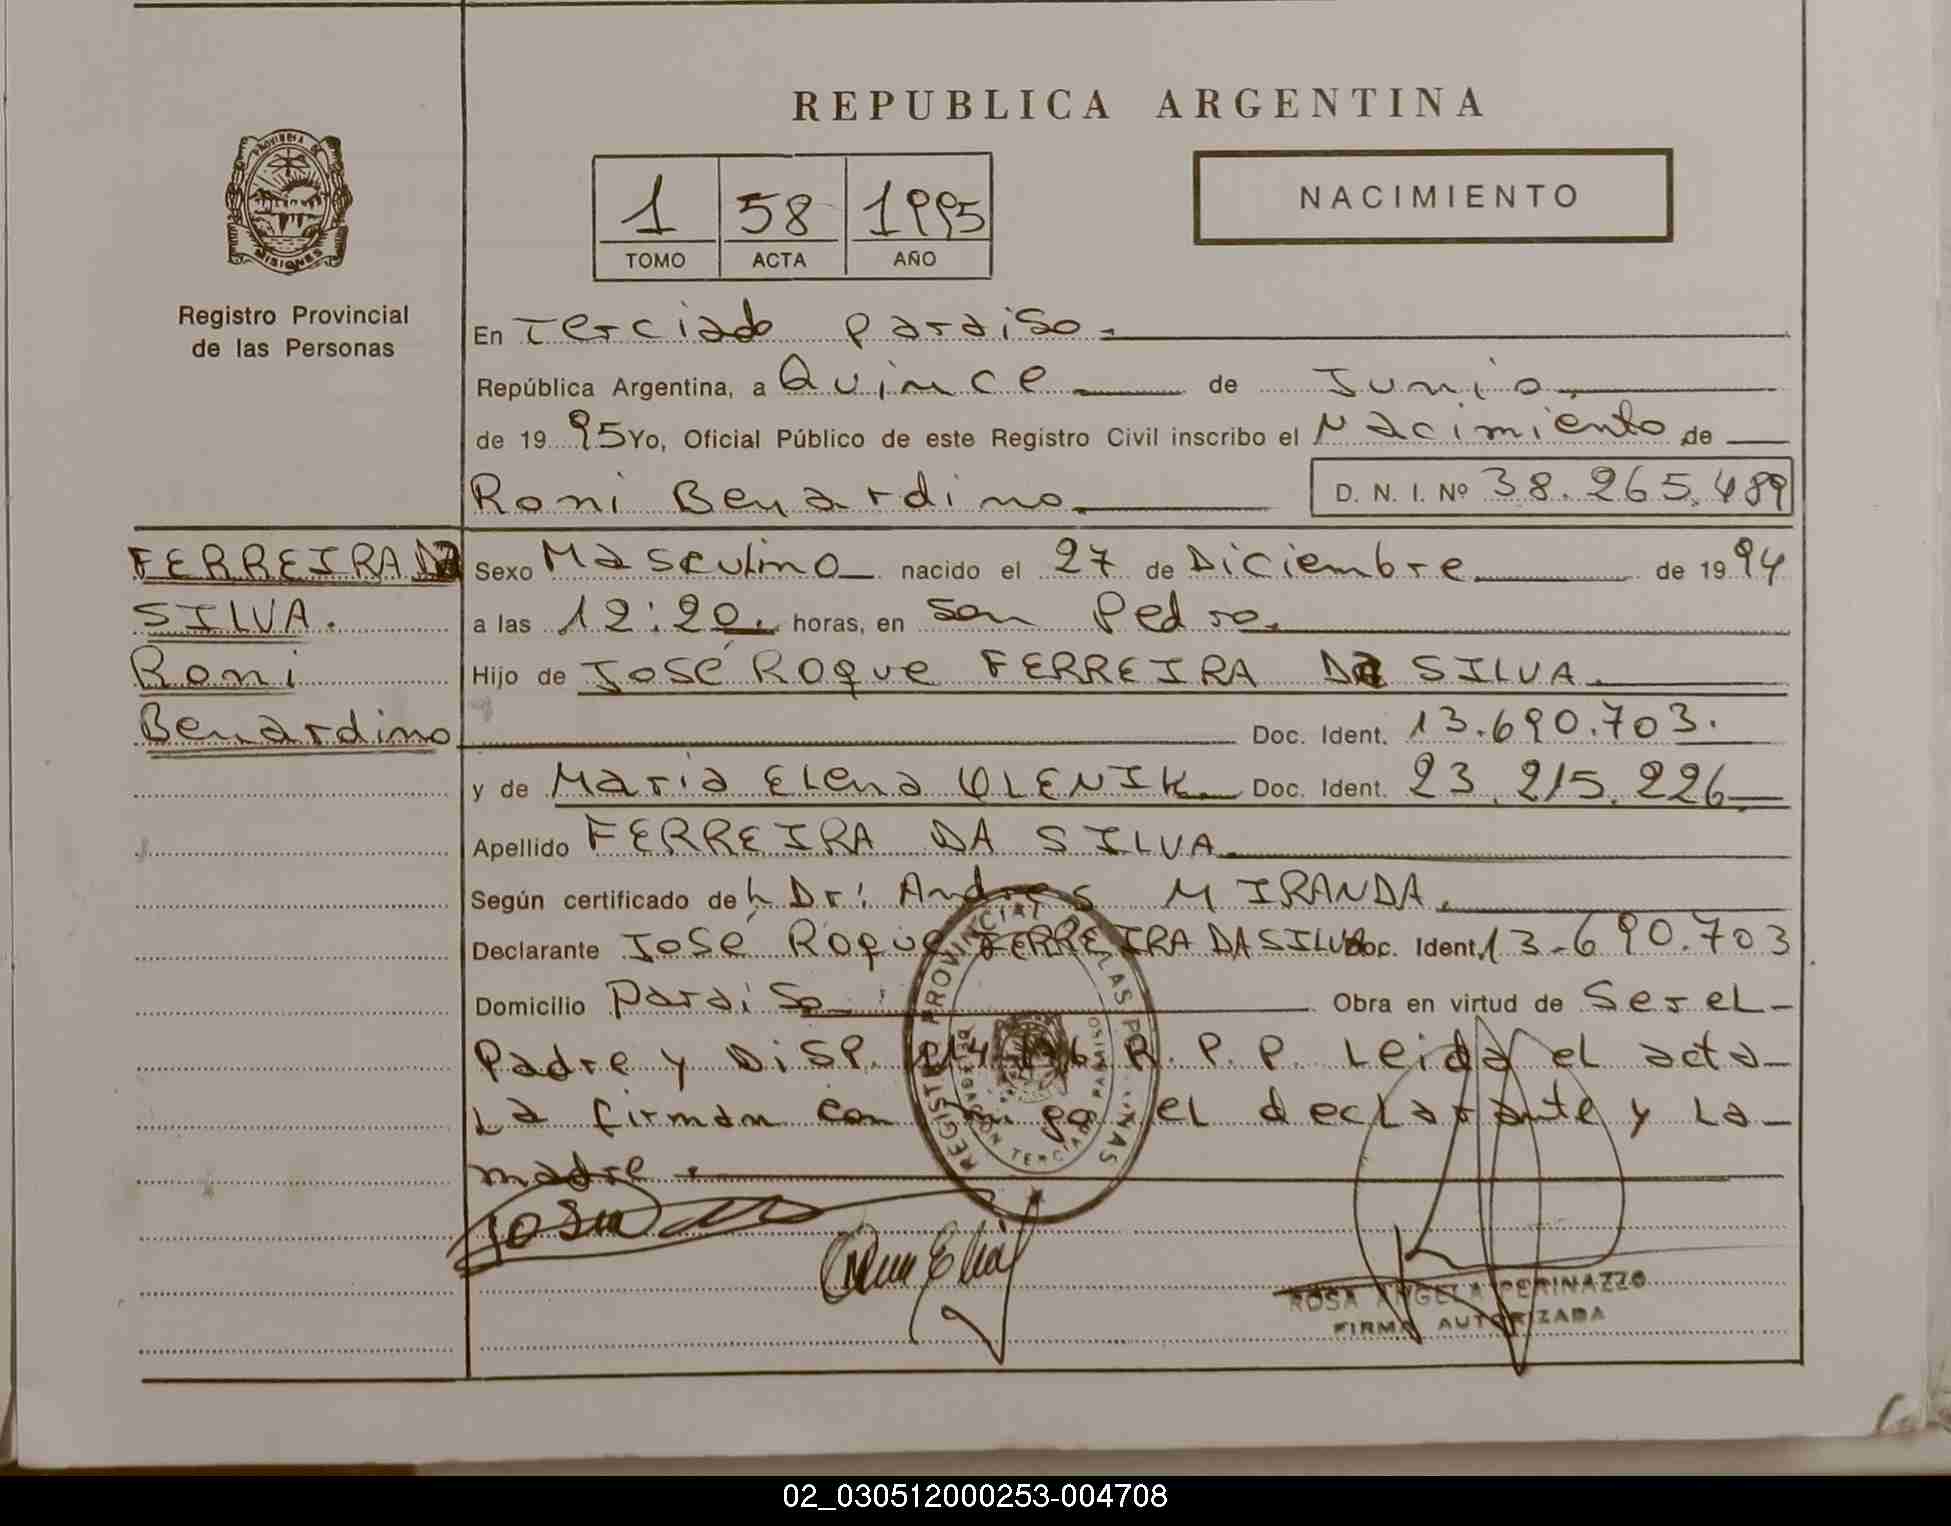 REPUBLICA ARGENTINA
PROVINCIA DE
MISIONES
Registro Provincial
de las Personas
1 58 1995
TOMO ACTA AÑO
NACIMIENTO
En Terciado Paraiso.
República Argentina, a Quince de Junio
de 19 95 Yo, Oficial Público de este Registro Civil inscribo el Nacimiento de
Roni Benardino. D. N. I. Nº 38.265.489
FERREIRA DA
SILVA.
Roni
Benardino
Sexo Masculino nacido el 27 de Diciembre de 19 94
a las 12:20. horas, en San Pedro.
Hijo de José Roque FERREIRA DA SILVA.
Doc. Ident. 13.690.703.
y de Maria Elena OLENIK Doc. Ident. 23.215.226
Apellido FERREIRA DA SILVA.
Según certificado de L Dr: Andres MIRANDA.
Declarante José Roque FERREIRA DA SILVA Doc. Ident. 13.690.703
Domicilio Paraiso Obra en virtud de Ser el
Padre y DiSP. R.P.P. Leida el acta
La firman con el declarante y La
madre.
REGISTRO PROVINCIAL DE LAS PERSONAS
ROSA ANGELA PERINAZZO
FIRMA AUTORIZADA
02_030512000253-004708